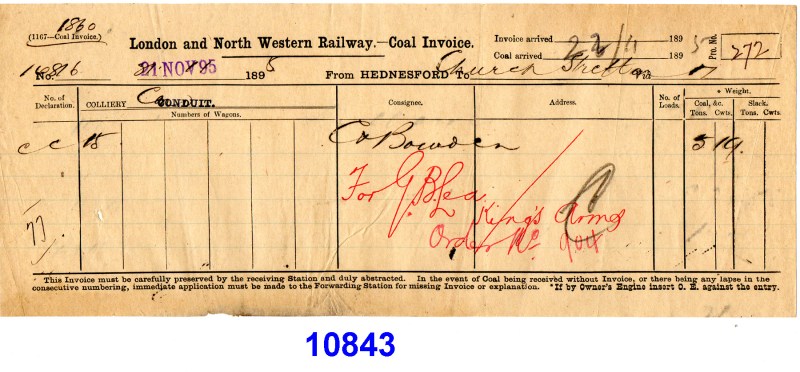 1860
(1167—Coal Invoice.)
London and North Western Railway.—Coal Invoice.
Invoice arrived 22/11 1895
Coal arrived 189
Pro. No. 272
No. 21 NOV 95 1895 From HEDNESFORD To Church Stretton Via
No. of Declaration.
COLLIERY CONDUIT.
Numbers of Wagons.
Consignee.
Address.
No. of Loads.
* Weight.
Coal, &c. Slack.
Tons. Cwts. Tons. Cwts.
CC 15 Co Bowden 5 19
For G. B. Lea
King's Arms
Order No. 904
77
This Invoice must be carefully preserved by the receiving Station and duly abstracted. In the event of Coal being received without Invoice, or there being any lapse in the
consecutive numbering, immediate application must be made to the Forwarding Station for missing Invoice or explanation. *If by Owner's Engine insert O. E. against the entry.
10843